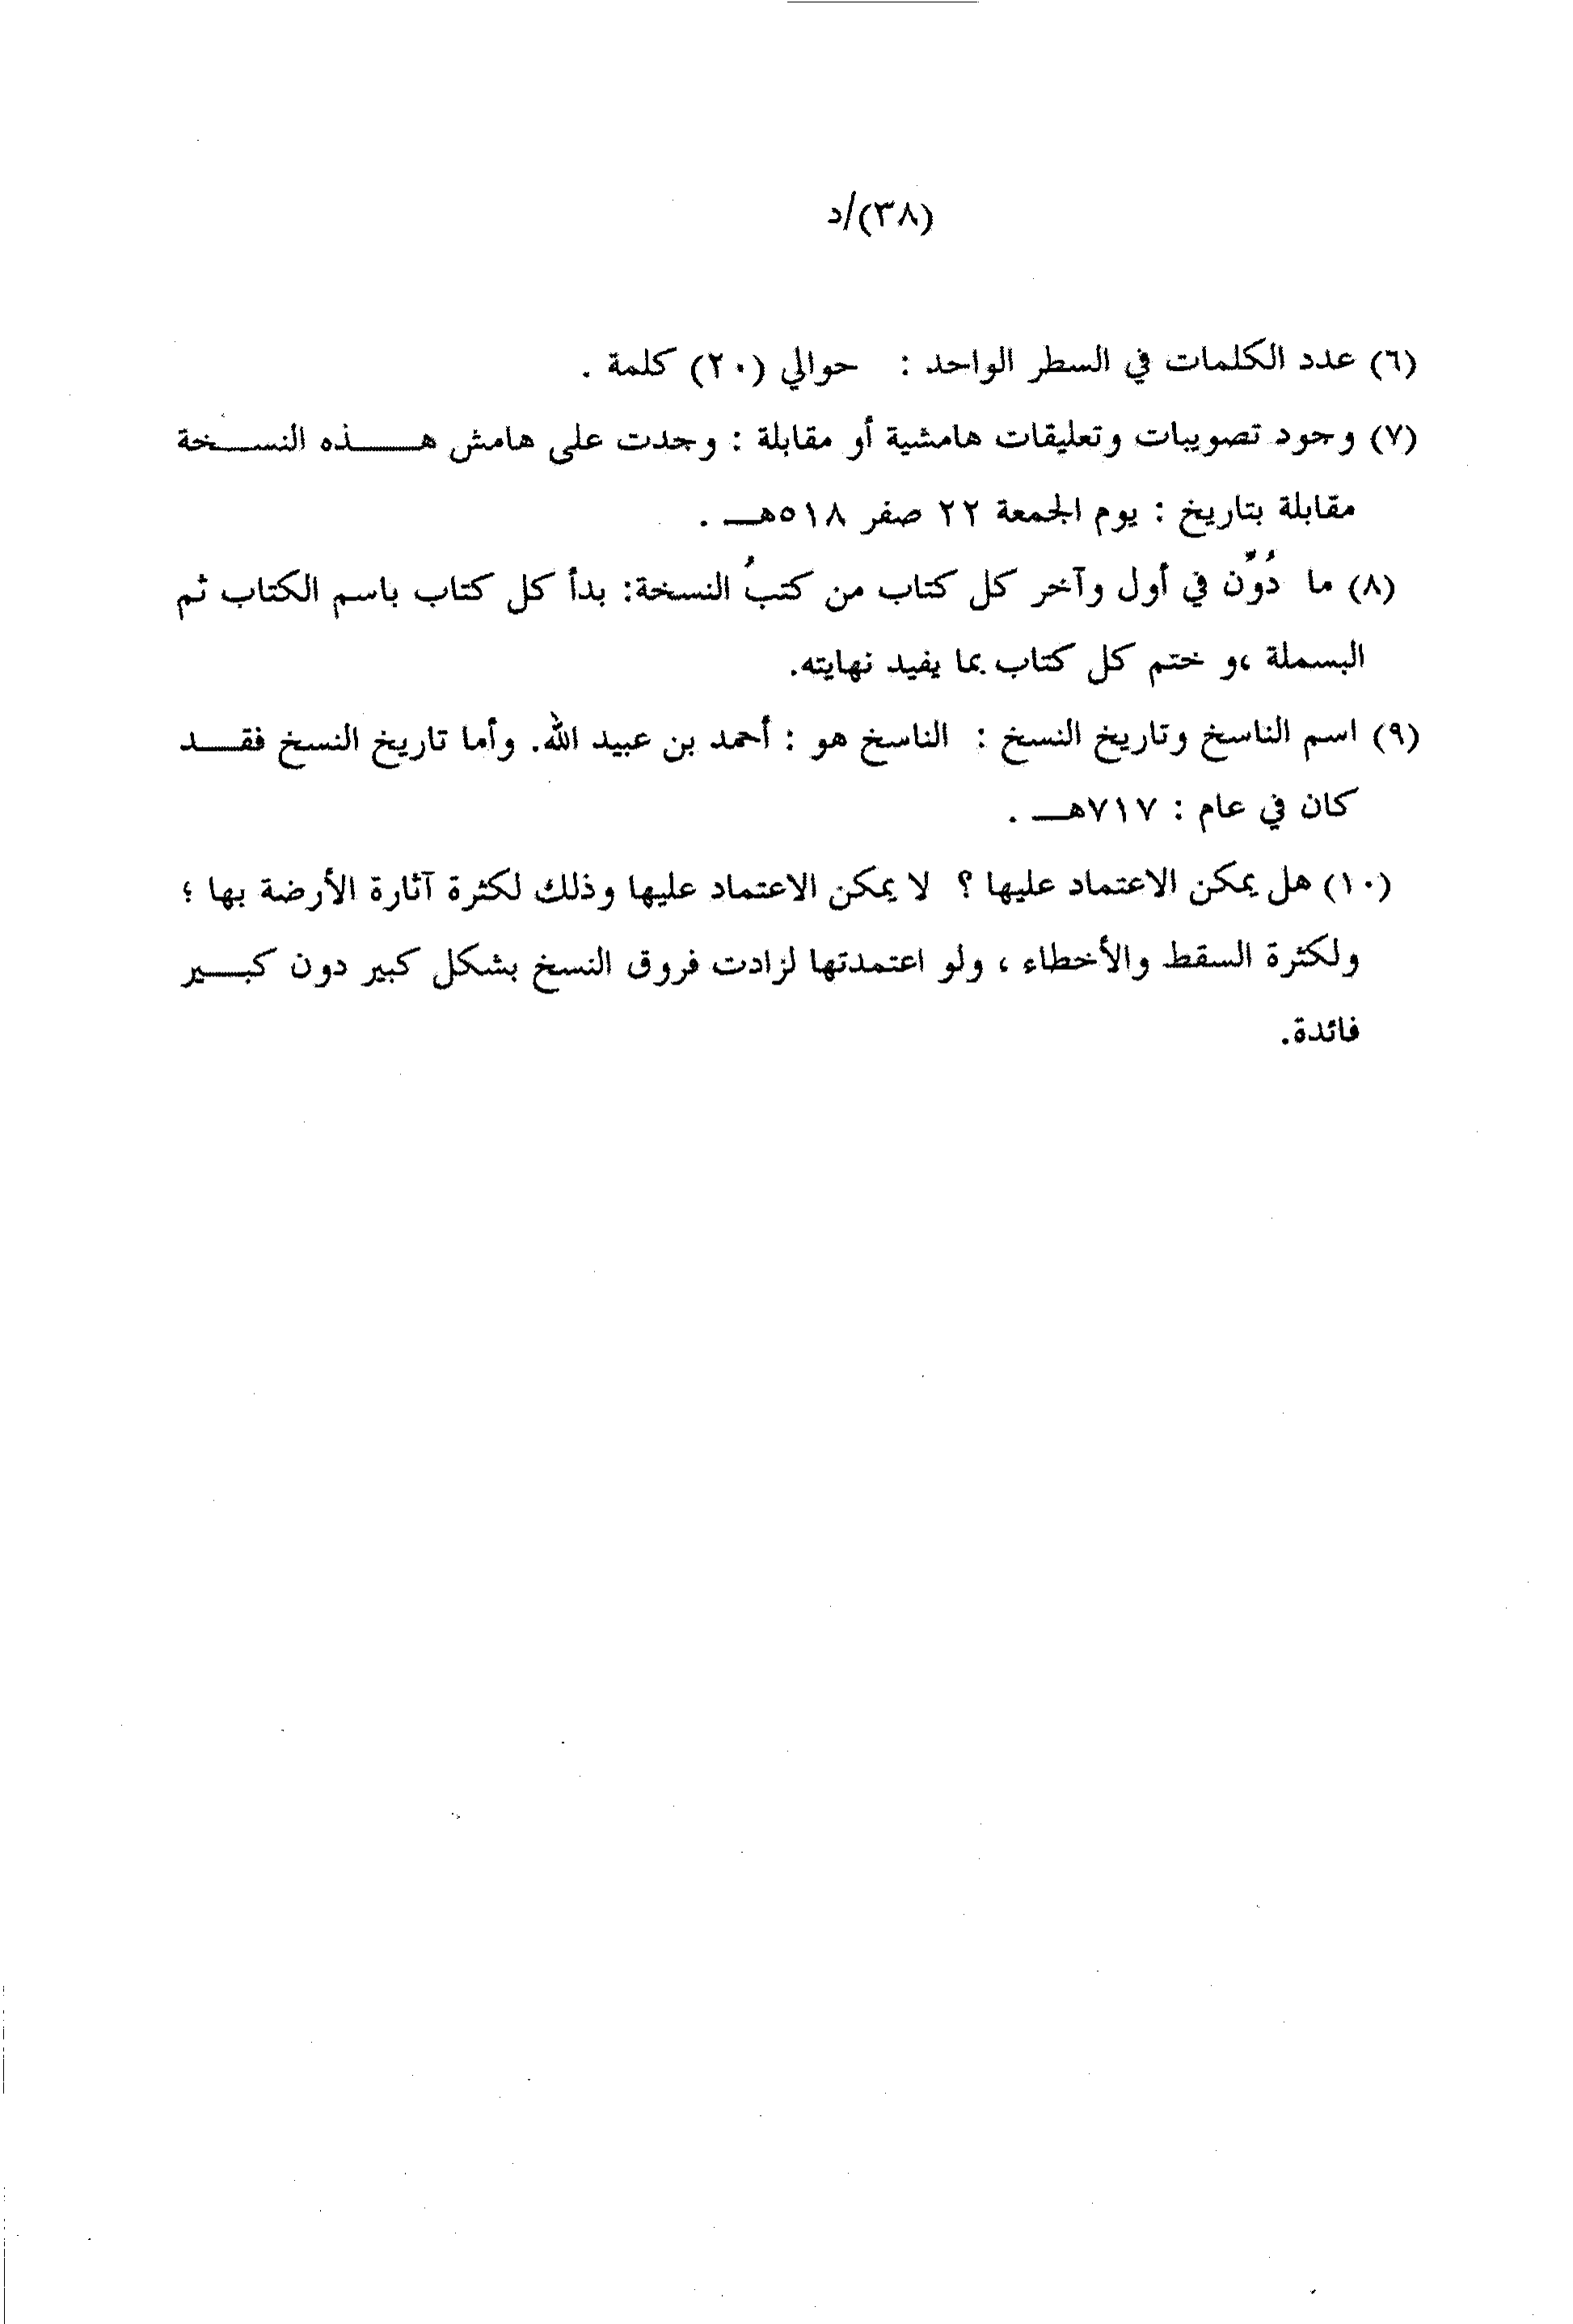 (٣٨)/د
(٦) عدد الكلمات في السطر الواحد : حوالي (٢٠) كلمة .
(٧) وجود تصويبات وتعليقات هامشية أو مقابلة : وجدت على هامش هـــــذه النســـخة
مقابلة بتاريخ : يوم الجمعة ٢٢ صفر ٥١٨هـــ .
(٨) ما دُوِّن في أول وآخر كل كتاب من كتبُ النسخة: بدأ كل كتاب باسم الكتاب ثم
البسملة ،و ختم كل كتاب بما يفيد نهايته.
(٩) اسم الناسخ وتاريخ النسخ : الناسخ هو : أحمد بن عبيد الله. وأما تاريخ النسخ فقـــد
كان في عام : ٧١٧هـــ .
(١٠) هل يمكن الاعتماد عليها ؟ لا يمكن الاعتماد عليها وذلك لكثرة آثارة الأرضة بها ؛
ولكثرة السقط والأخطاء ، ولو اعتمدتها لزادت فروق النسخ بشكل كبير دون كبـــير
فائدة.